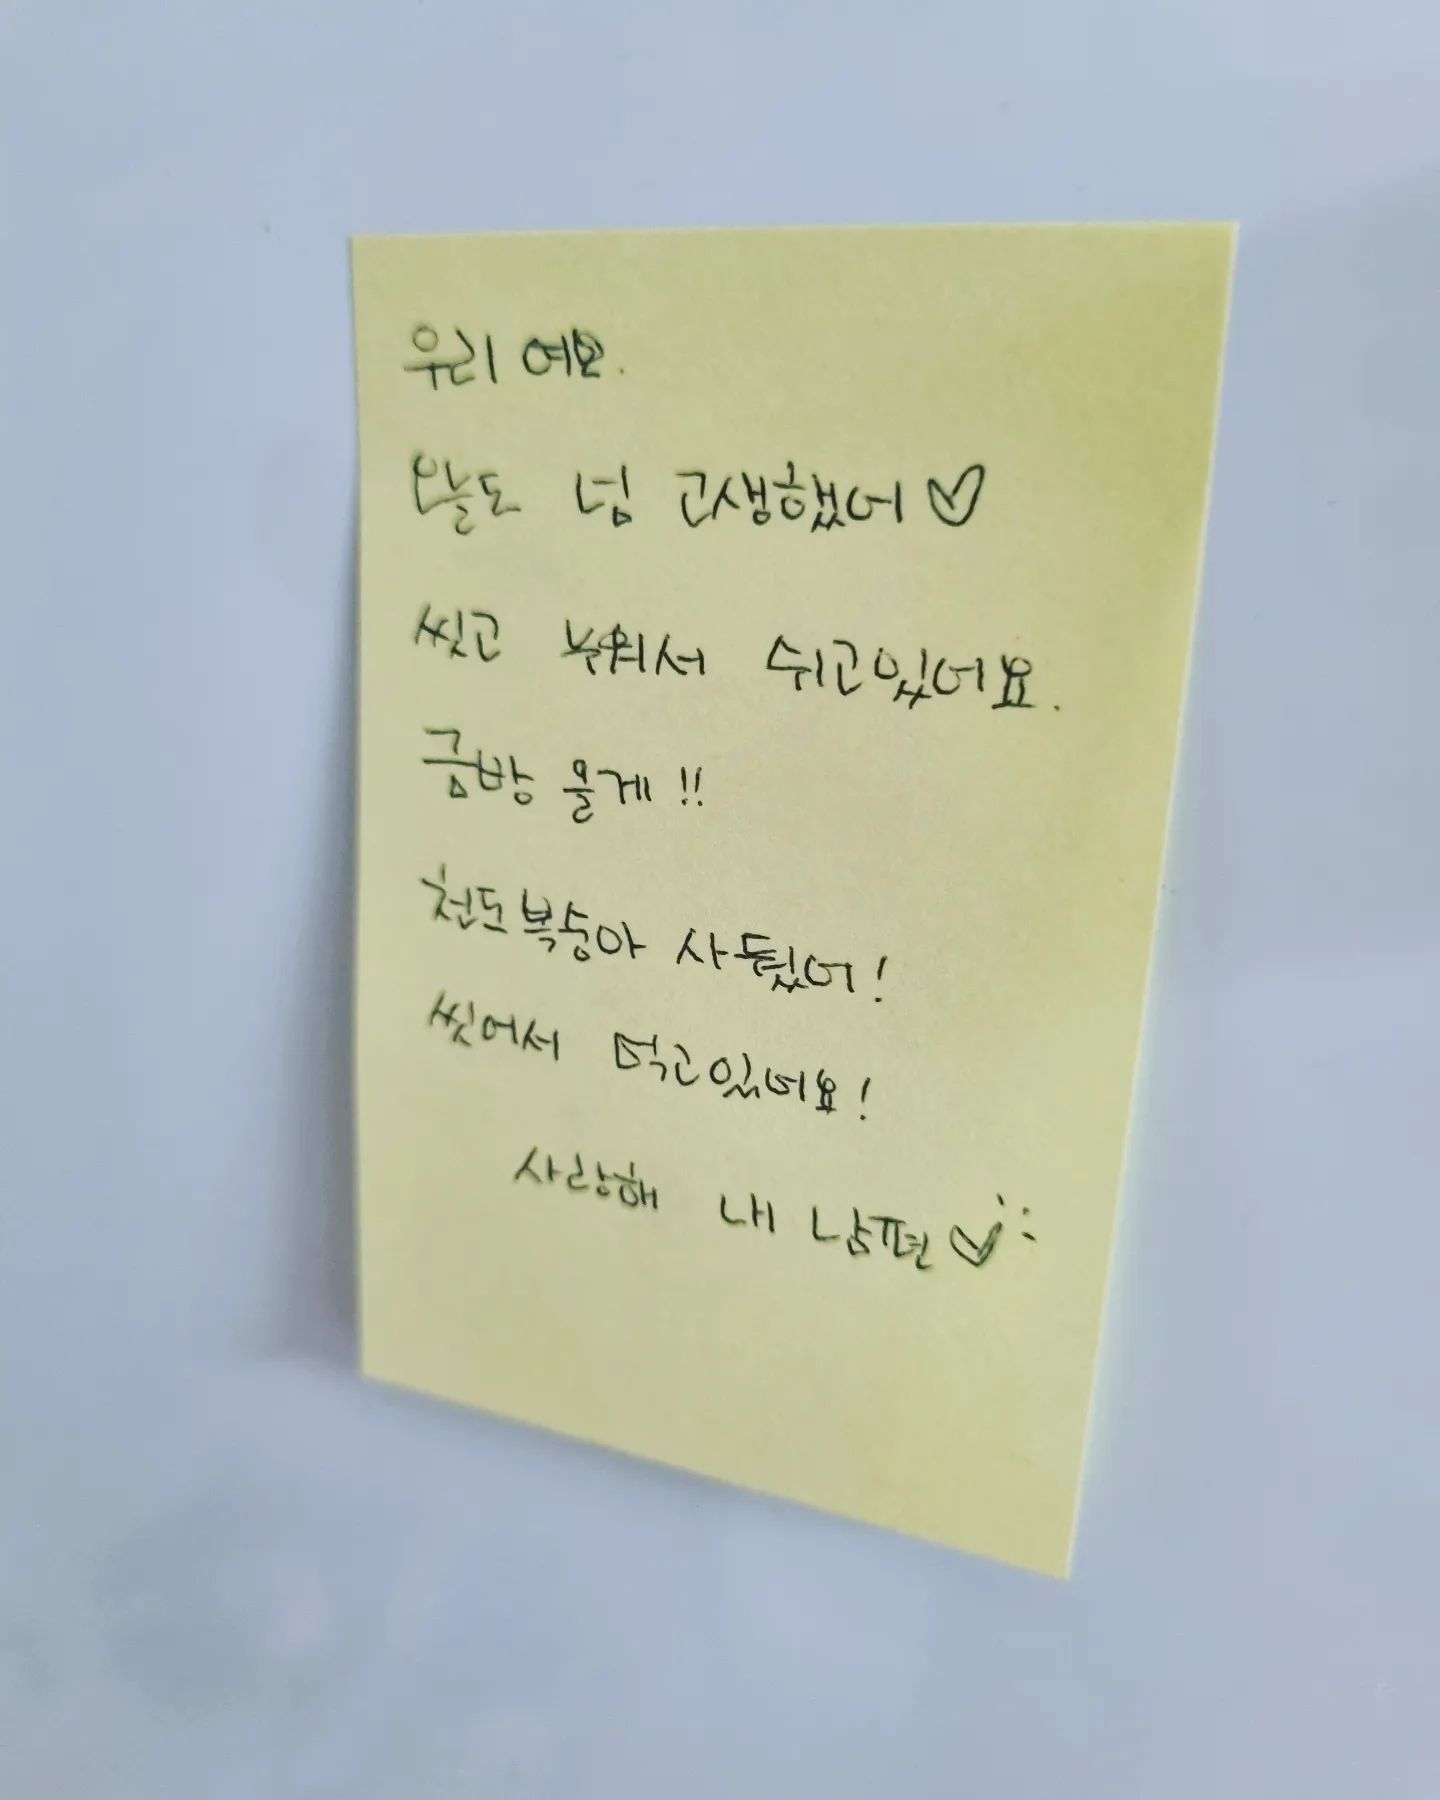 우리 여보.
오늘도 넘 고생했어♡
씻고 누워서 쉬고있어요.
금방 올게!!
천도복숭아 사뒀어!
씻어서 먹고있어요!
사랑해 내 남편♡